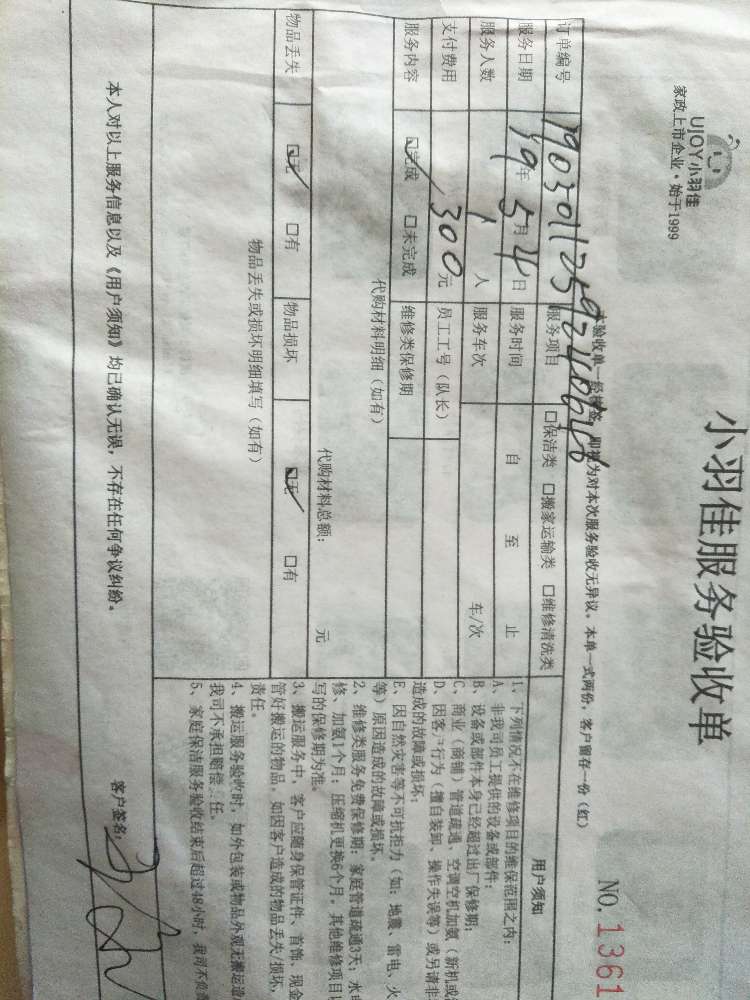 UJOY小羽佳
家政上市企业·始于1999
小羽佳服务验收单
NO.1361
本验收单一经签, 即视为对本次服务验收无异议。本单一式两份, 客户留存一份 (红)
订单编号
服务项目 □保洁类 □搬家运输类 □维修清洗类
服务日期 19年5月4日 服务时间 自 至 止
服务人数 1人 服务车次 车/次
支付费用 300元 员工工号 (队长)
服务内容 ☑完成 □未完成 维修类保修期
代购材料明细 (如有)
代购材料总额: 元
物品丢失 ☑无 □有 物品损坏 ☑无 □有
物品丢失或损坏明细填写 (如有)
用户须知
1、下列情况不在维修项目的维保范围之内:
A、非我司员工提供的设备或部件;
B、设备或部件本身已经超过出厂保修期;
C、商业 (商铺) 管道疏通、空调空机加氨 (新机或
D、因客户行为 (擅自装卸、操作失误等) 或另请非
造成的故障或损坏;
E、因自然灾害等不可抗拒力 (如: 地震、雷电、火
等) 原因造成的故障或损坏。
2、维修类服务免费保修期: 家庭管道疏通3天; 水电
修、加氨1个月; 压缩机更换6个月。其他维修项目以
写的保修期为准。
3、搬运服务中, 客户应随身保管证件、首饰、现金
管好搬运的物品。如因客户造成的物品丢失/损坏,
责任。
4、搬运服务验收时, 如外包装或物品外观无搬运造
我司不承担赔偿责任。
5、家庭保洁服务验收结束后超过48小时, 我司不负
本人对以上服务信息以及《用户须知》均已确认无误, 不存在任何争议纠纷。
客户签名: